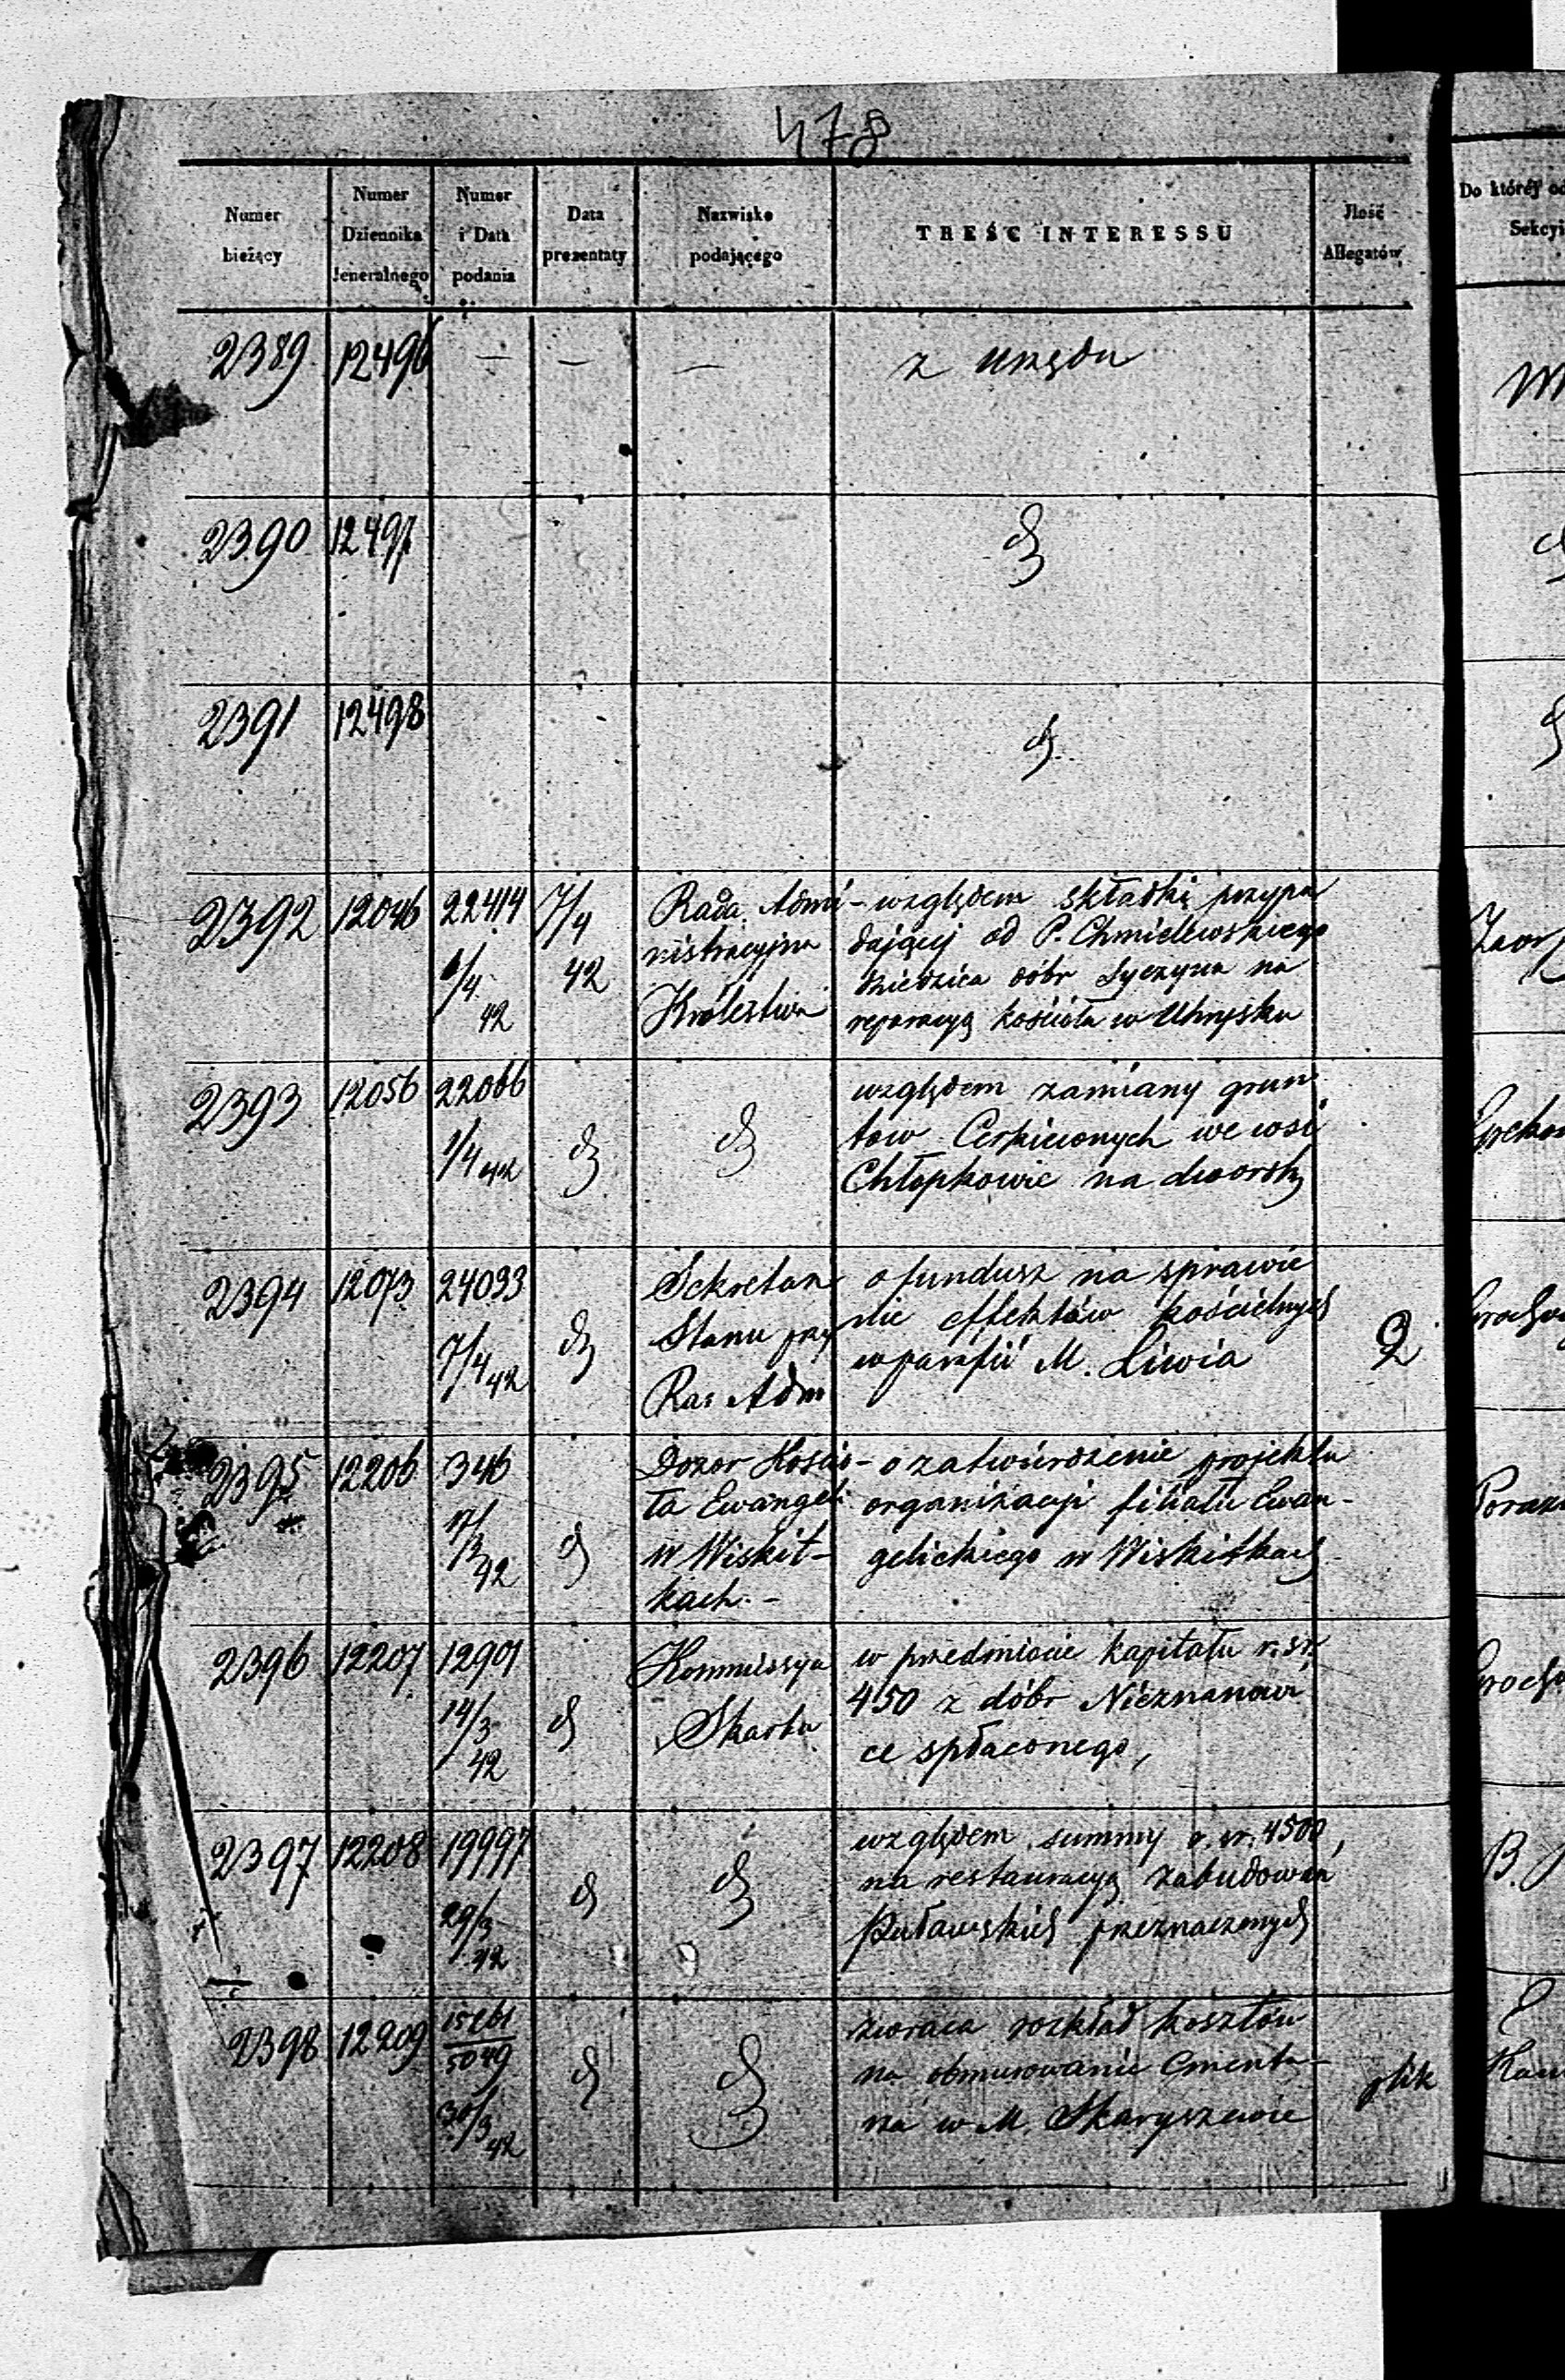 478
Numer bieżący
Numer Dziennika Jeneralnego
Numer i Data podania
Data prezentaty
Nazwisko podającego
TREŚĆ INTERESSU
Ilość Allegatów
Do któréj
Sekcyi
2389 12496 — — — z urzędu
2390 12497 d
2391 12498 d
2392 12046 22414 6/4 42 7/4 42
Rada Admi-
nistracyjna
Królestwa
względem składki przypa
dającej od P. Chmielewskiego
dziedzica dóbr Syczyna na
reparacyą kościoła w Uhrusku
2393 12056 22066 1/4 42 d d
względem zamiany grun
tow Cerkiewnych we wsi
Chłopkowie na dworską
2394 12073 24033 7/4 42 d
Sekretarz
Stanu przy
Ra: Adm
o fundusz na sprawie
nie effektów kościelnych
w parafii M. Liwia
2
2395 12206 346 17/3 42 d
Dozor Kościo-
ła Ewangeli
w Wiskit-
kach.-
o zatwierdzenie projektu
organizacji filiału Ewan-
gelickiego w Wiskitkach
2396 12207 12901 14/3 42 d
Kommissya
Skarbu
w przedmiocie kapitału r. sr.
450 z dóbr Nieznanowi
ce spłaconego,
2397 12208 19997 29/3 42 d d
względem summy r. sr. 4500,
na restauracyą zabudowań
Puławskich przeznaczonych
2398 12209 15261/5049 30/3 42 d d
zwraca rozkład kosztów
na obmurowanie Cmenta-
rza w M. Skaryszewie
plik